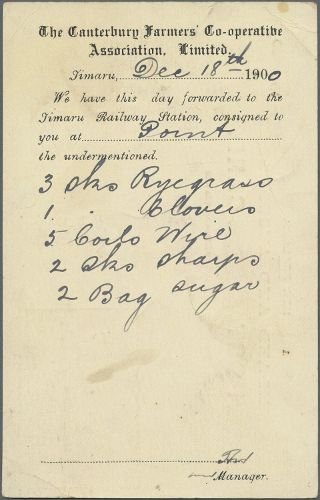 The Canterbury Farmers' Co-operative
Association, Limited.
Timaru, Dec 18th 1900
We have this day forwarded to the
Timaru Railway Station, consigned to
you at Point
the undermentioned.
3 sks Ryegrass
1 . Clovers
5 Coils Wire
2 sks sharps
2 Bag sugar
Manager.